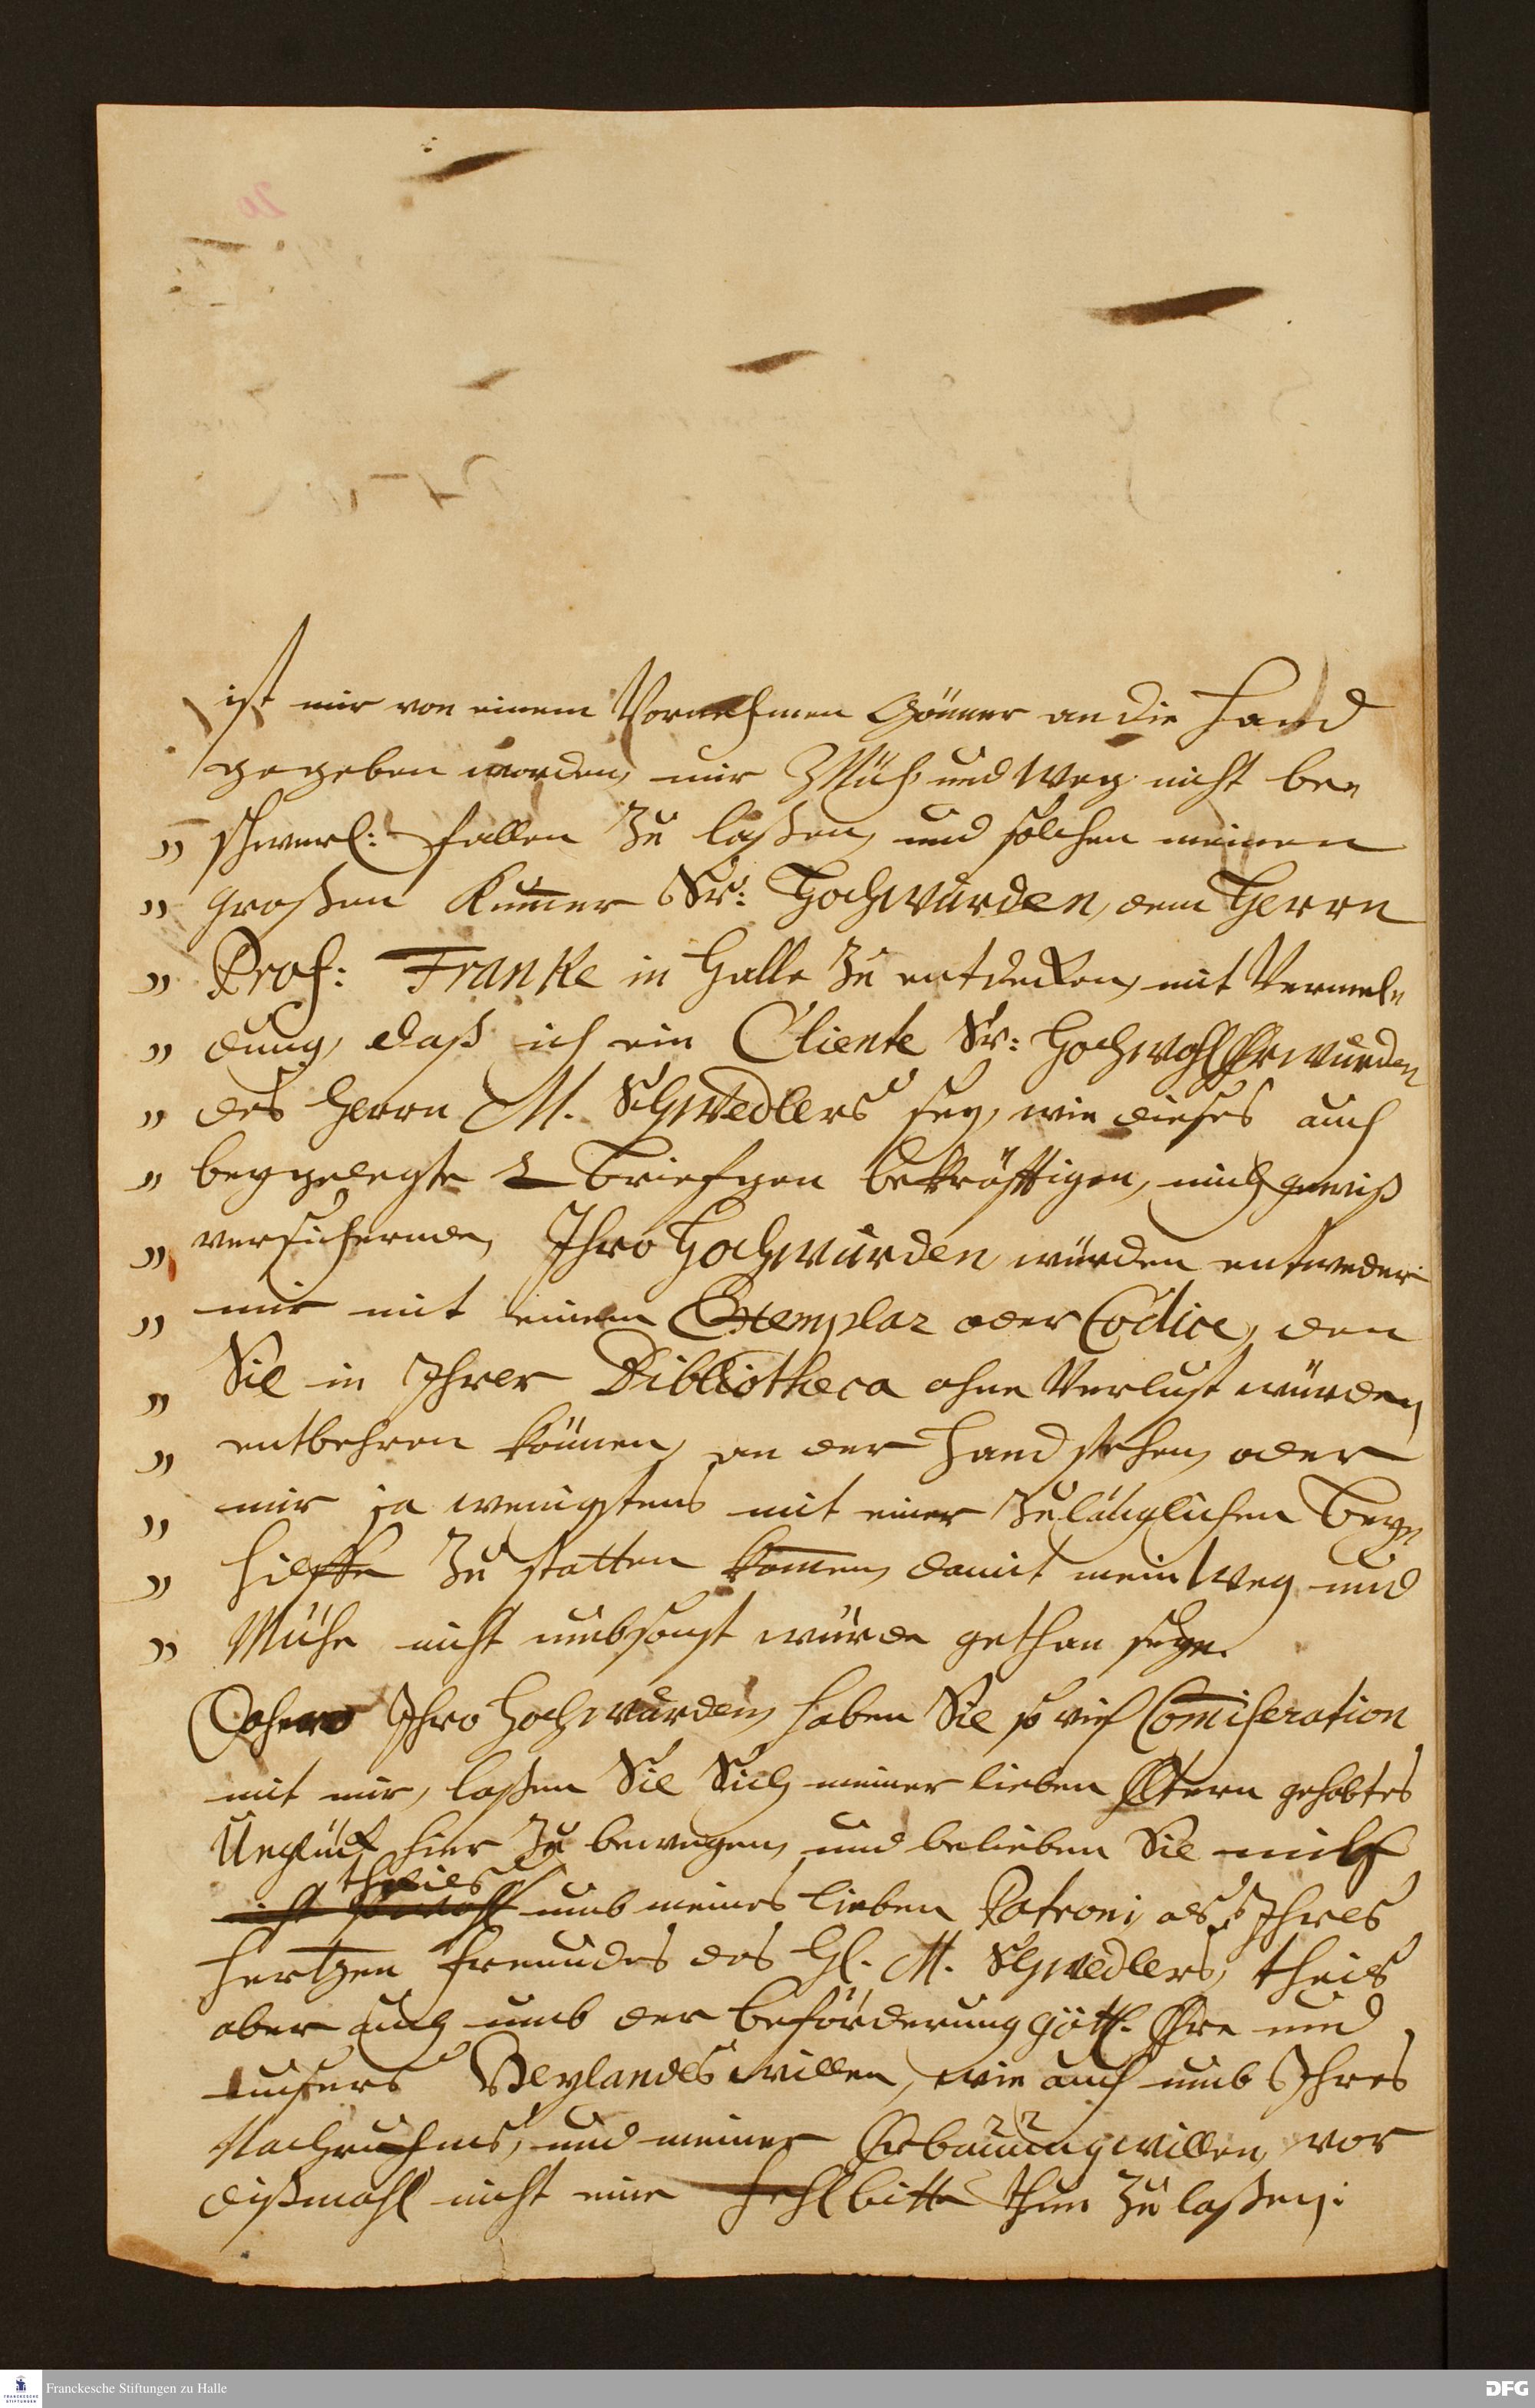 ist mir von einem Vornehmen Gönner an die Hand
gegeben worden, mir Müh und Weg nicht be„
„ schwerl: fallen zu laßen, und solchen meinen
„ großen Kum̄er Sr: Hochwürden, dem Herrn
„ Prof: Franke in Halle zu entdecken, mit Vermel„
„ dung, daß ich ein Cliente Sr: HochwohlEhrwürden
„ des Herrn M. Schwedlers sey, wie dieses auch
„ beygelegte 2 Briefgen bekräfftigen, mich gewiß
„ versichernde, Ihro Hochwürden würden entweder
„ mir mit einem Exemplar oder Codice, den
„ Sie in Ihrer Bibliotheca ohne Verlust würden
„ entbehren können, an der Hand stehen, oder
„ mir ja wenigstens mit einer zulänglichen Bey„
„ hilffe zu statten kom̄en, damit mein Weg und
„ Mühe nicht umbsonst würde gethan seyn.
Dahero Ihro Hochwürden, haben Sie so viel Com̄iseration
mit mir, laßen Sie Sich meiner lieben Eltern gehabtes
Unglück hier zu bewegen, und belieben Sie mich
theils
nicht sowohl umb meines lieben Patroni, als Ihres
Hertzen Freundes des H. M. Schwedlers, theils
aber auch umb der Beförderung göttl. Ehre und
unsers Heylandes willen, wie auch umb Ihres
Nachruhms, und meiner Erbauung willen, vor
dißmahl nicht eine Fehlbitte thun zu laßen.
Franckesche Stiftungen zu Halle
DFG